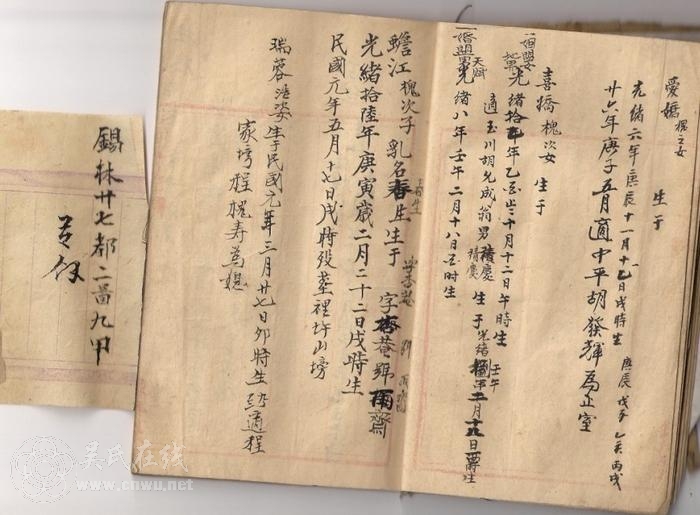 愛嬌 槐之女 生于
光緒六年庚辰十一月十七日戌時生 庚辰 戊子 乙亥 丙戌
廿六年庚子五月適中平胡發輝為正室
喜嬌 槐次女 生于
光緒拾乙年乙酉歲十月十二日午時生
適玉川胡允成翁男積慶 生于光緒 壬午 二月十八日酉時生
光緒八年壬午二月十八日酉时生
蟾江 槐次子 乳名春生生于 字杏菴號雨齋
春生 字杏菴 號雨齋
光緒拾陸年庚寅歲二月二十二日戌時生
民國元年五月十七日戌時殁塟裡圲山塝
瑞蓉 生于民國元年三月廿七日夘時生 適程
家塝程槐壽為媳
錫林廿七都二畾九甲
吴氏在线
www.cnwu.net